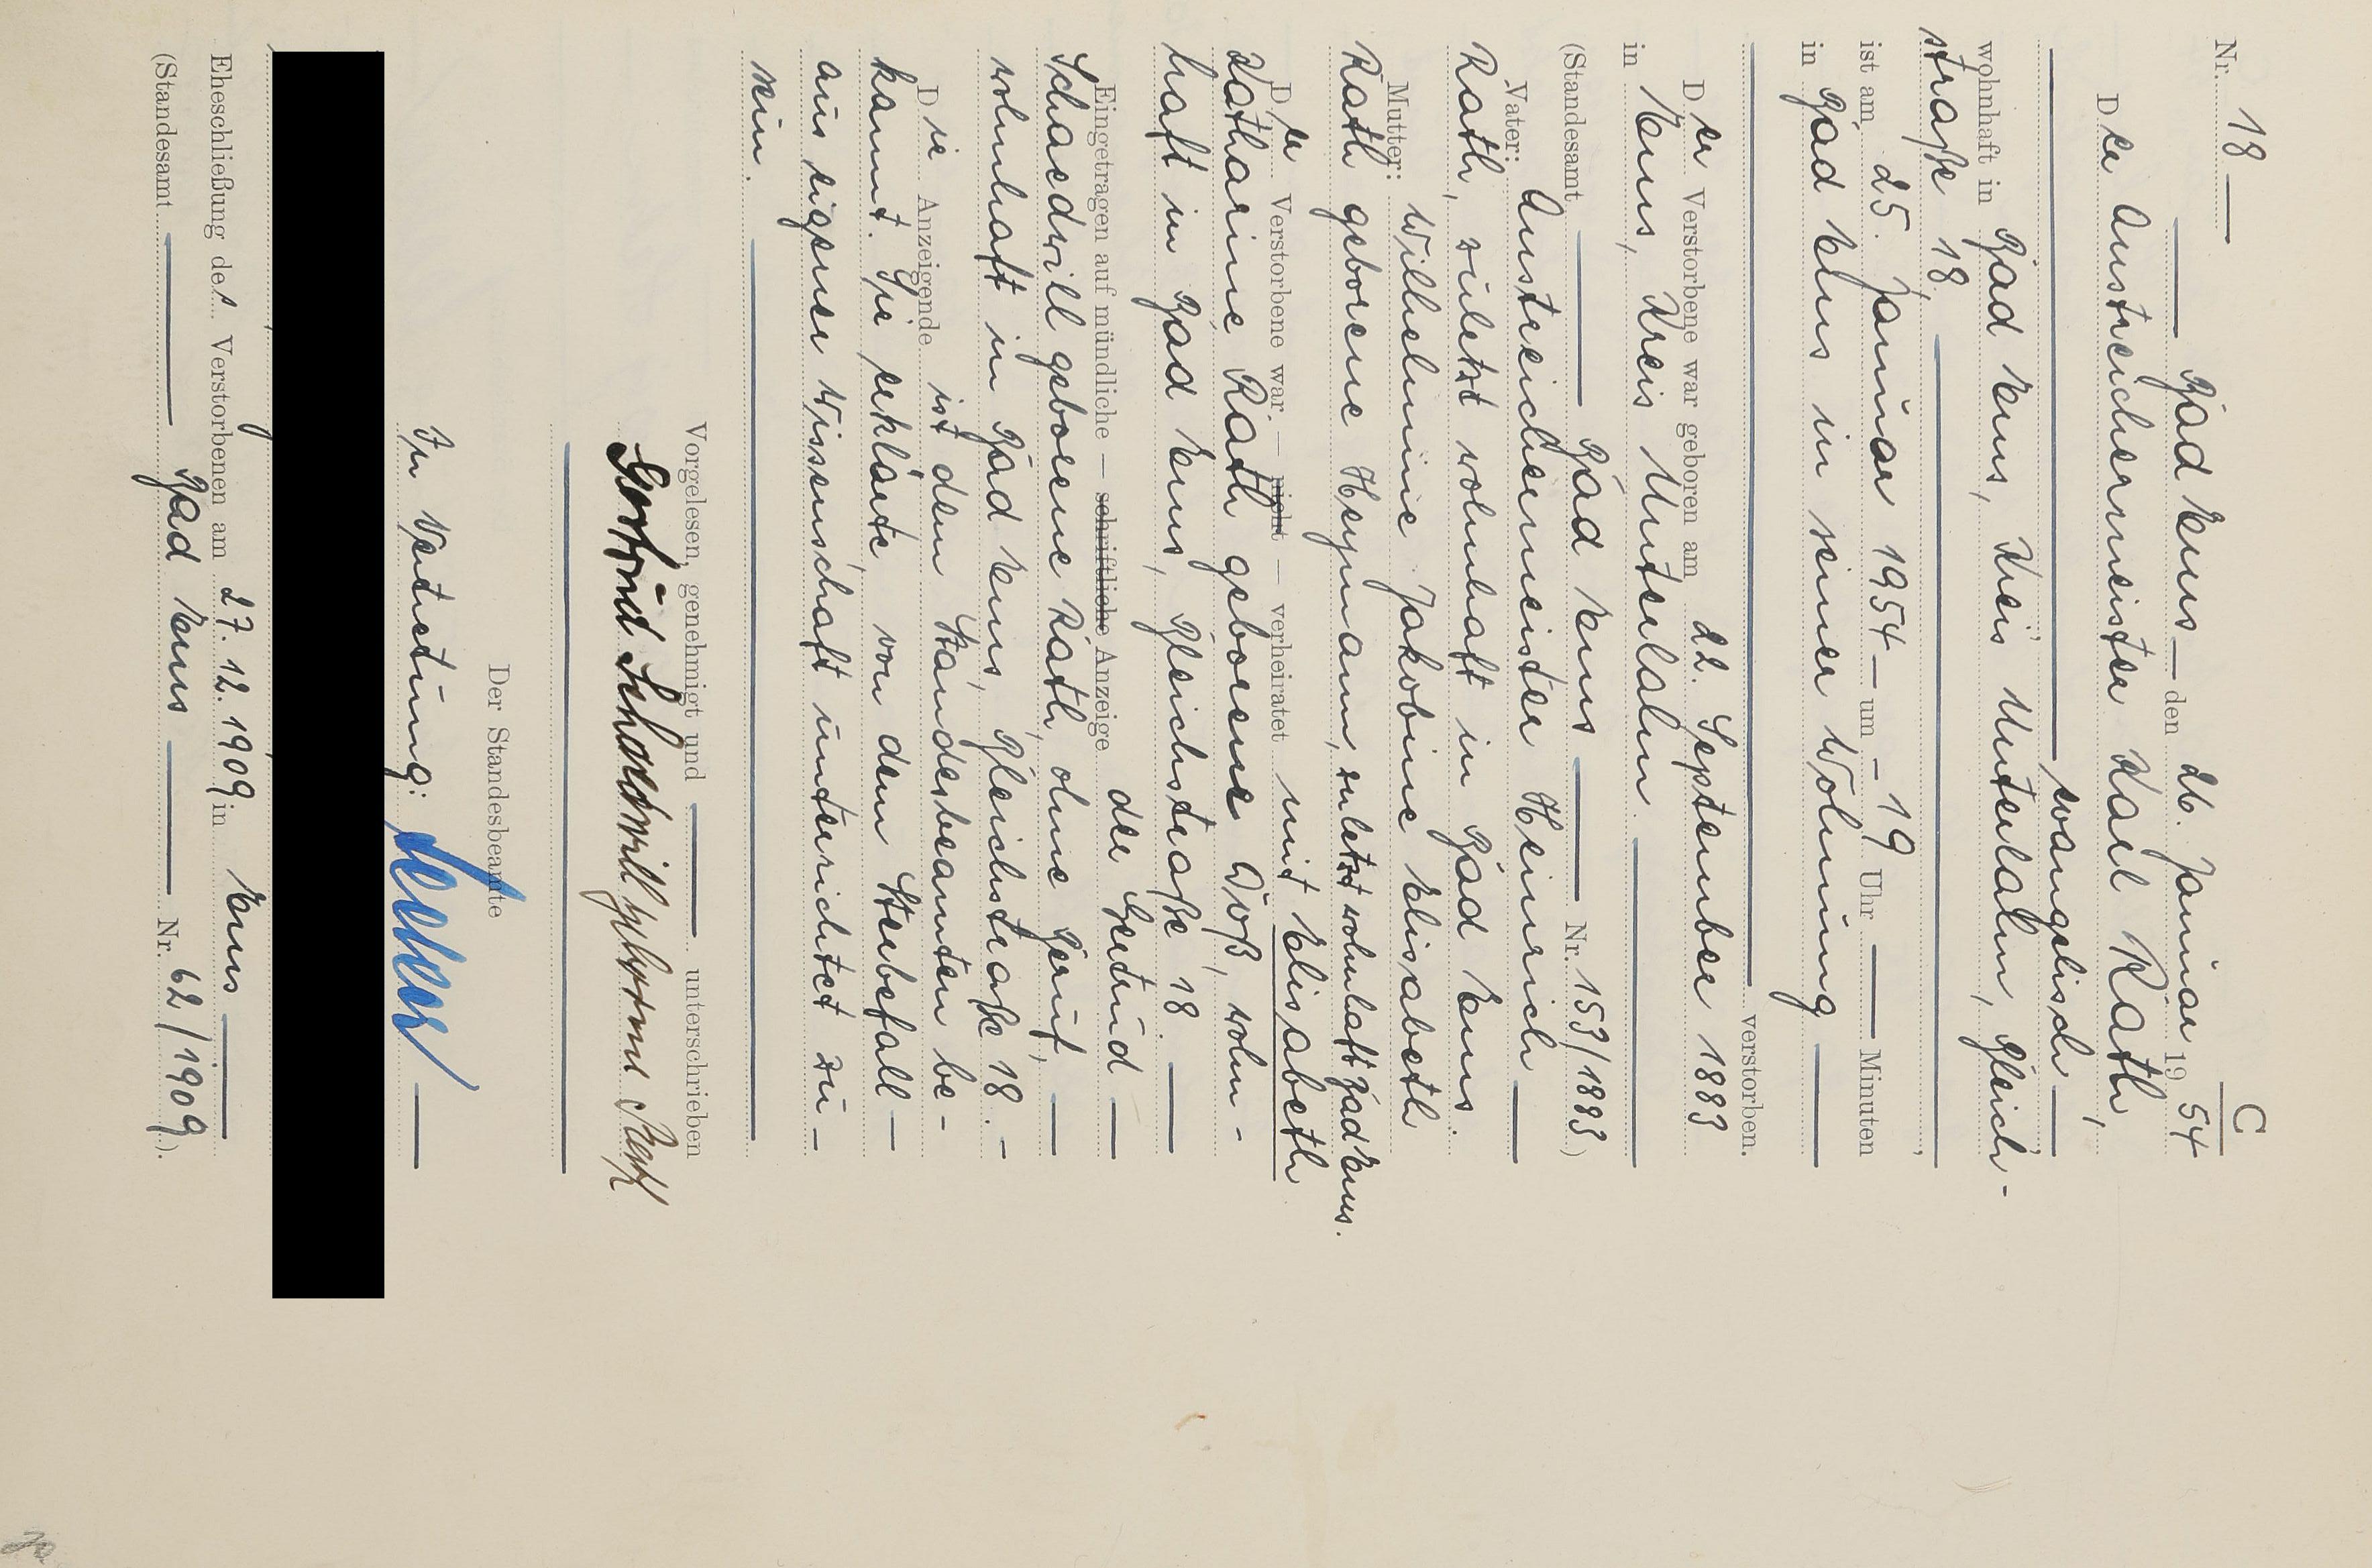 C
Nr. 18
Bad Ems — den 26. Januar 19 54
Der Anstreichermeister Karl Rath,
evangelisch
wohnhaft in Bad Ems, Kreis Unterlahn, Gleich-
straße 18,
ist am 25. Januar 1954 — um — 19 Uhr — Minuten
in Bad Ems in seiner Wohnung
verstorben.
Der Verstorbene war geboren am 22. September 1883
in Ems, Kreis Unterlahn.
(Standesamt — Bad Ems — Nr. 153/1883)
Vater: Anstreichermeister Heinrich
Rath, zuletzt wohnhaft in Bad Ems.
Mutter: Wilhelmine Jakobine Elisabeth
Rath geborene Heymann, zuletzt wohnhaft Bad Ems.
Der Verstorbene war — nicht — verheiratet mit Elisabeth
Katharine Rath geborene Voß, wohn-
haft in Bad Ems, Gleichstraße 18.
Eingetragen auf mündliche — schriftliche Anzeige der Gertrud
Schaedwill geborene Rath, ohne Beruf,
wohnhaft in Bad Ems, Gleichstraße 18. -
Die Anzeigende ist dem Standesbeamten be-
kannt. Sie erklärte, von dem Sterbefall —
aus eigener Wissenschaft unterrichtet zu —
sein.
Vorgelesen, genehmigt und — unterschrieben
Gertrud Schaedwill geborene Rath
Der Standesbeamte
In Vertretung:
Eheschließung des Verstorbenen am 27. 12. 1909 in Ems
(Standesamt — Bad Ems — Nr. 62/1909).